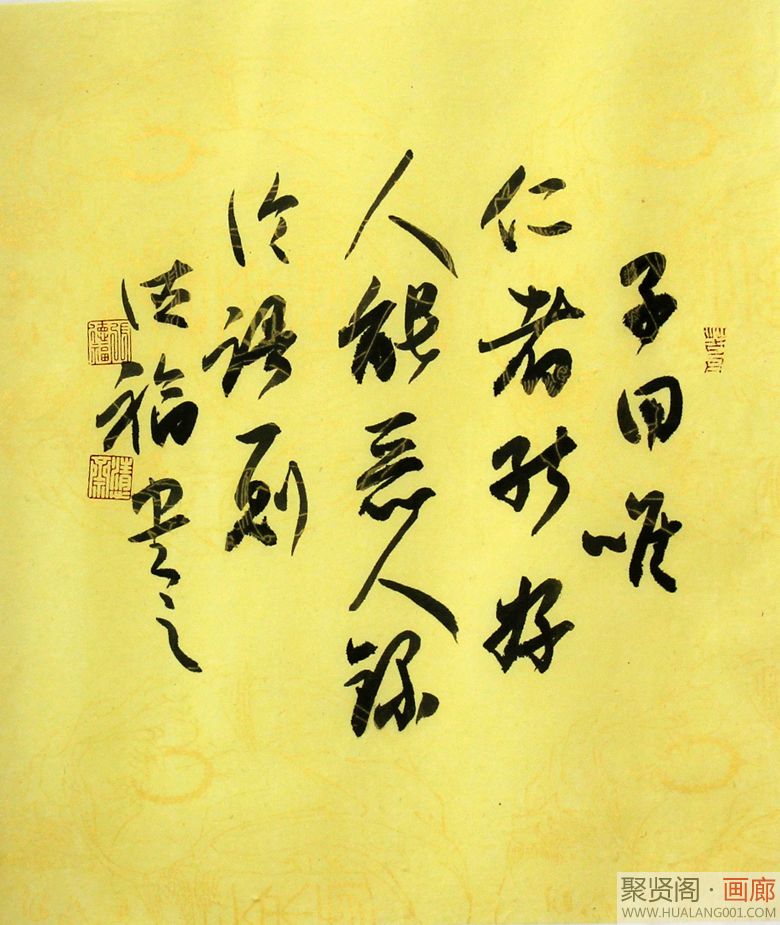 子曰唯
仁者能好
人能恶人録
论语一则
德福书之
張德福
聚贤阁·画廊
WWW.HUALANG001.COM